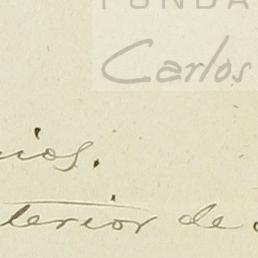 FUNDA
Carlos
nios.
terior de